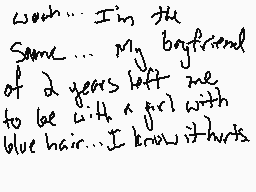 woah... I'm the
same... My boyfriend
of 2 years left me
to be with a girl with
blue hair... I know it hurts